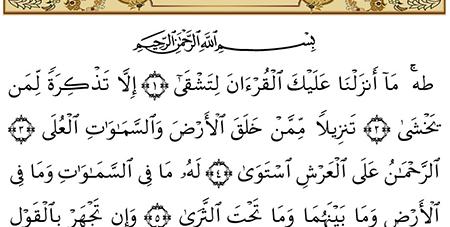 بِسْمِ ٱللَّهِ ٱلرَّحْمَٰنِ ٱلرَّحِيمِ
طه ۚ مَآ أَنزَلْنَا عَلَيْكَ ٱلْقُرْءَانَ لِتَشْقَىٰٓ ﴿١﴾ إِلَّا تَذْكِرَةً لِّمَن
يَخْشَىٰ ﴿٢﴾ تَنزِيلاً مِّمَّنْ خَلَقَ ٱلْأَرْضَ وَٱلسَّمَٰوَٰتِ ٱلْعُلَى ﴿٣﴾
ٱلرَّحْمَٰنُ عَلَى ٱلْعَرْشِ ٱسْتَوَىٰ ﴿٤﴾ لَهُۥ مَا فِى ٱلسَّمَٰوَٰتِ وَمَا فِى
ٱلْأَرْضِ وَمَا بَيْنَهُمَا وَمَا تَحْتَ ٱلثَّرَىٰ ﴿٥﴾ وَإِن تَجْهَرْ بِٱلْقَوْلِ